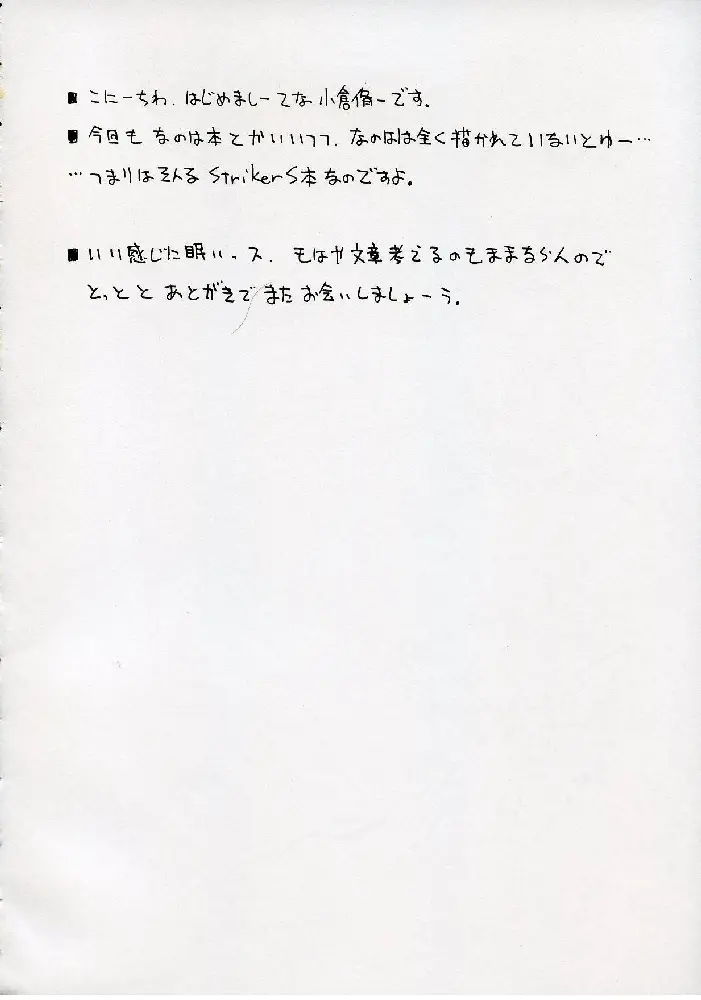 ■こにーちわ.はじめましーてな小倉脩一です.
■今回も なのは本とかいいつつ、なのはは全く描かれていないとゆー…
…つまりはそんな StrikerS本なのですよ。
■いい感じに眠いっス. もはや文章考えるのもままならんので
とっとと あとがきでまたお会いしましょーう.